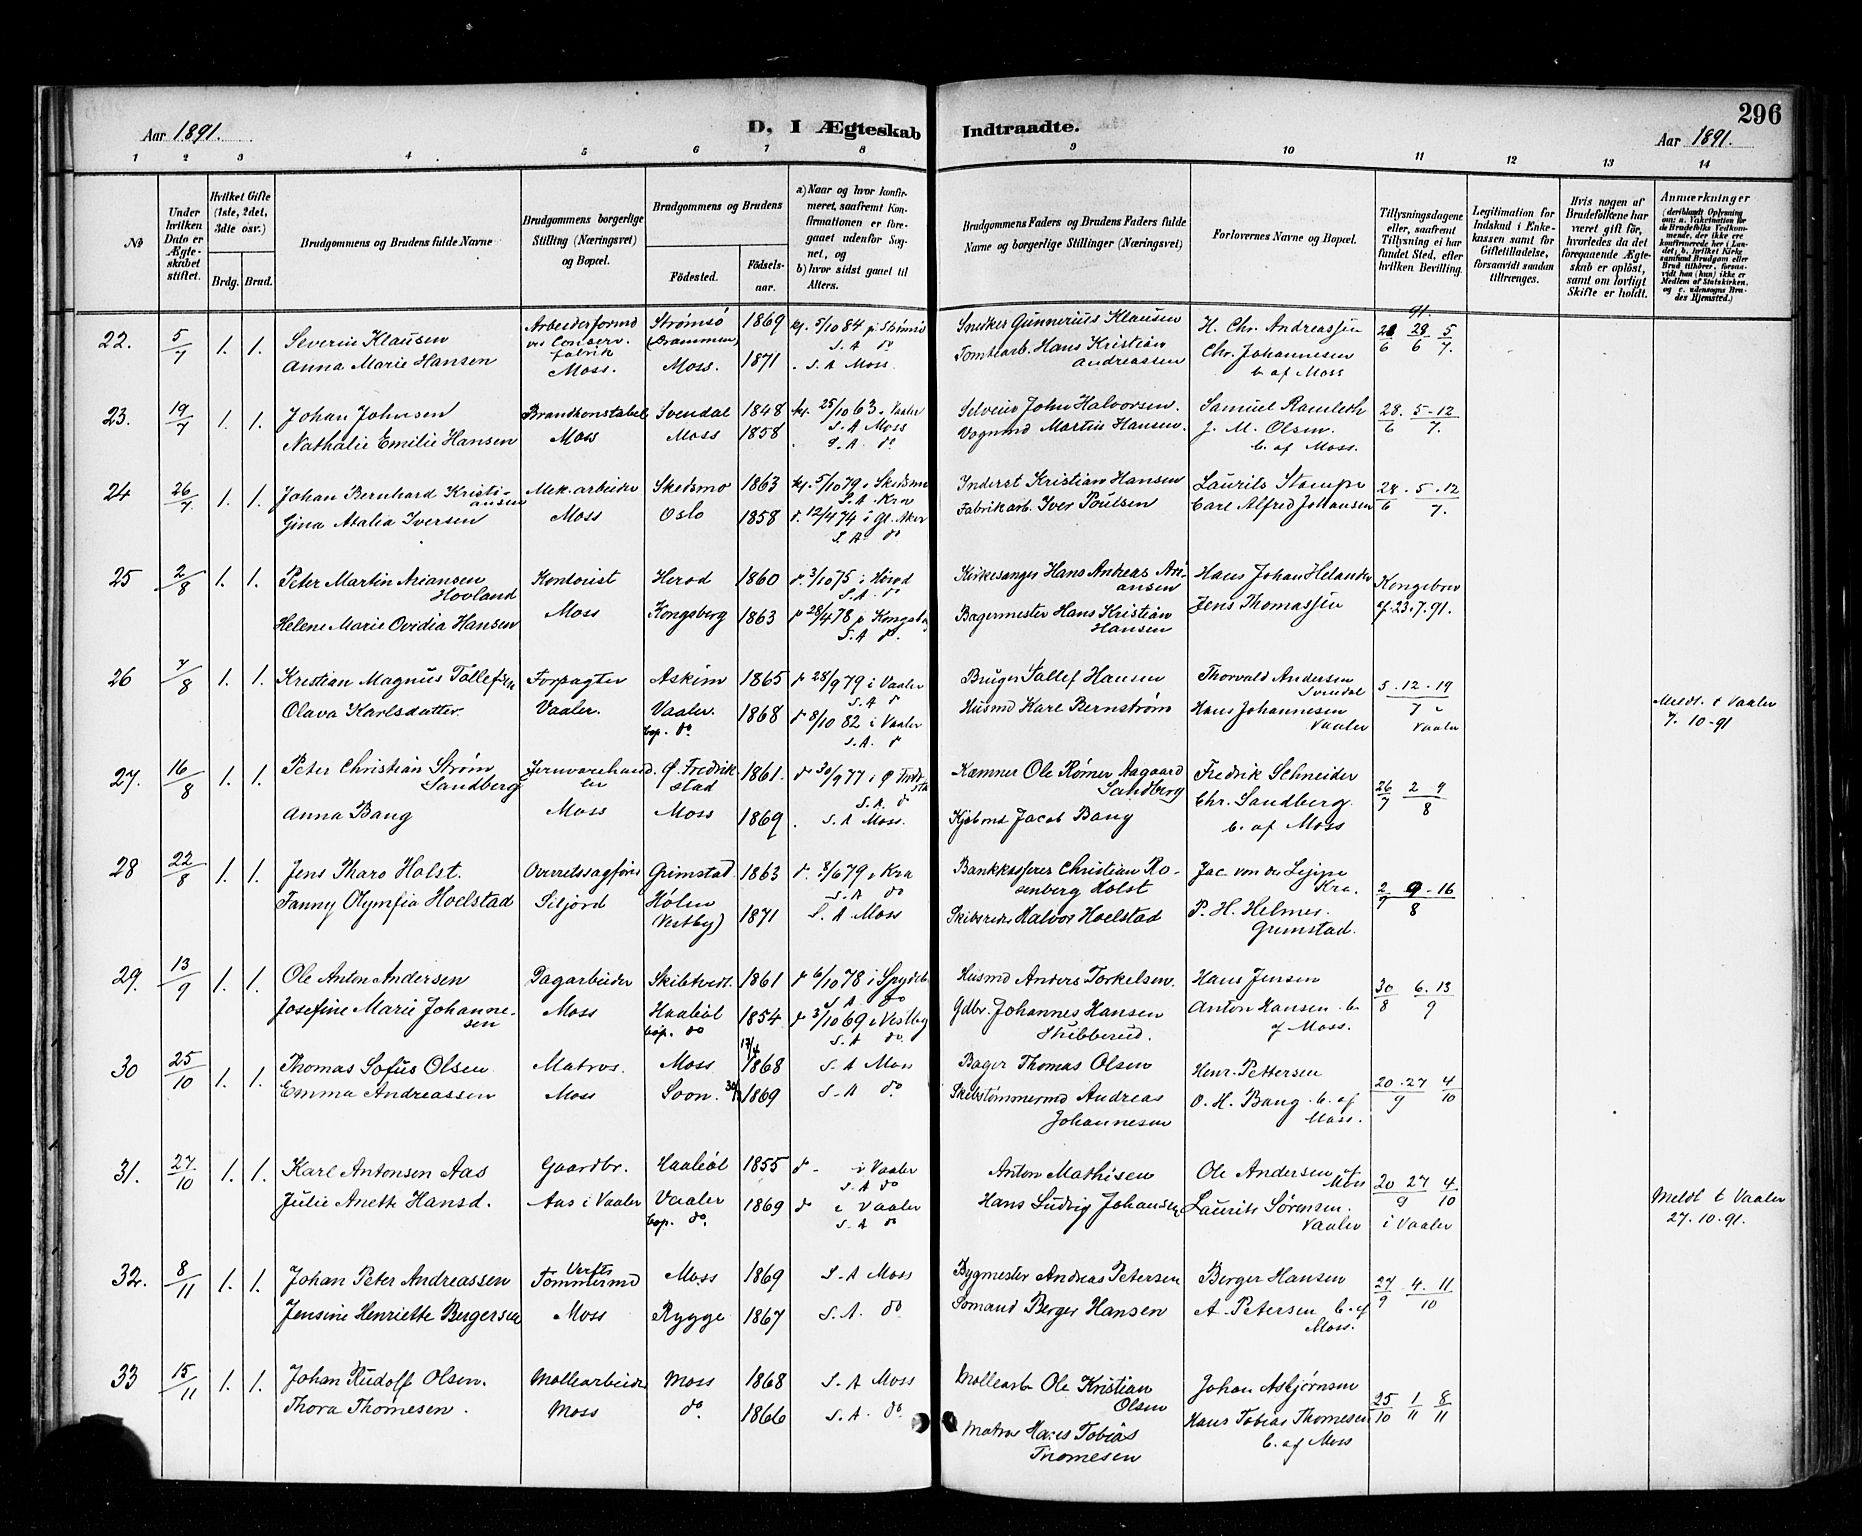 296
Aar 1891. D, I Ægteskab Indtraadte. Aar 1891.
1 2 3 4 5 6 7 8 9 10 11 12 13 14
No
Under hvilken Dato er Ægteskabet stiftet.
Hvilket Gifte (1ste, 2det, 3dte osv.)
Brdg. Brud.
Brudgommens og Brudens fulde Navne
Brudgommens borgerlige Stilling (Næringsvei) og Bopæl.
Brudgommens og Brudens
Födested. Födselsaar.
a) Naar og hvor konfirmeret, saafremt Konfirmationen er foregaaet udenfor Sognet, og
b) hvor sidst gaaet til Alters.
Brudgommens Faders og Brudens Faders fulde Navne og borgerlige Stillinger (Næringsvei)
Forlovernes Navne og Bopæl.
Tillysningsdagene eller, saafremt Tillysning ei har fundet Sted, efter hvilken Bevilling.
Legitimation for Indskud i Enkekassen samt for Giftetilladelse, forsaavidt saadan tiltrænges.
Hvis nogen af Brudefolkene har været gift för, hvorledes da det foregaaende Ægteskab er oplöst, samt om lovligt Skifte er holdt.
Anmærkninger
22. 5/7 1. 1. Severin Klausen Arbeiderformd Strømsö 1869 kf. 5/10 84 p Strömsö Snedker Gunnerius Klausen H. Chr. Andreassen 21/6 28/6 5/7. 91.
ved Conserv. fabrik (Drammen) S. A do
Anna Marie Hansen Moss. Moss. 1871 S. A Moss Tomtearb. Hans Kristian Andreassen Chr. Johannesen
b. af Moss
23. 19/7 1. 1. Johan Johnsen Brandkonstabel Svendal 1848 kf. 25/10 63 i Vaaler Selveier John Halvorsen. Samuel Ramleth 28/6. 5-12/7.
S. A Moss
Nathalie Emilie Hansen Moss Moss 1858 S. A. do Vognmd Martin Hansen. J. M. Olsen.
b. af Moss.
24 26/7 1. 1. Johan Bernhard Kristiansen Mek. arbeider Skedsmo 1863 kf. 5/10 79 i Skedsmo Inderst Kristian Hansen Laurits Stampe 28/6. 5.12/7.
S. A. Kra
Gina Atalia Iversen Moss Oslo 1858 d. 12/4 74 i Gl. Aker Fabrikarb. Iver Poulsen Carl Alfred Johansen
S. A. do
25 2/8 1. 1. Peter Martin Ariansen Hovland Kontorist Herod 1860 d. 3/10 75 i Herod Kirkesanger Hans Andreas Ariansen Hans Johan Helander Kongebrev
S. A do
Helene Marie Ovidia Hansen Moss Kongsberg 1863 d 28/4 78 p Kongsberg Bagermester Hans Kristian Hansen Jens Thomassen af 23.7.91.
S. A do.
26 7/8 1. 1. Kristian Magnus Tollefsen Forpagter Askim 1865 d 28/9 79 i Vaaler Bruger Tollef Hansen Thorvald Andersen Svendal 5.12.19/7 i Vaaler
S. A do
Olava Karlsdatter. Vaaler. Vaaler. bop. do 1868 d 8/10 82 i Vaaler Husmd Karl Bernström Hans Johannesen Vaaler Meldt t Vaaler 7.10-91
S. A. do
27. 16/8 1. 1. Peter Christian Ström Sandberg Jernvarehandler Ø. Fredrikstad 1861. d 30/9 77 i Ø Fredrsta Kæmner Ole Rømer Aagaard Sandberg Fredrik Schneider 26/7 2 9/8
S. A. do
Anna Bang Moss Moss 1869 S. A Moss. Kjøbmd Jacob Bang Chr. Sandberg.
b. af Moss
28 22/8 1. 1. Jens Tharo Holst. Overretssagfører Grimstad 1863 d. 8/6 79 i Kra Bankkasserer Christian Rosenberg Holst Jac. von der Lippe Kra. 2 9-16/8
S. A do
Fanny Olymfia Hoelstad Siljord Hölen (Vestby) 1871 S. A Moss Skibsreder Halvor Hoelstad P. H. Helmer. Grimstad.
29. 13/9 1. 1. Ole Anton Andersen Dagarbeider Skibtvedt. 1861 d 6/10 78 i Spydeb. Husmd Anders Torkelsen. Hans Jensen 30/8 6.13/9
S. A do
Josefine Marie Johannesen Moss Haaböl bop. do 1854 d 3/10 69 i Vestby Gdbr. Johannes Hansen Stubberud. Anton Hansen b. af Moss.
S. A do.
30 25/10 1. 1. Thomas Sofus Olsen Matros. Moss 17/4 1868 S. A Moss Bager Thomas Olsen Henr. Pettersen 20.27/9 4/10
Emma Andreassen Moss Soon. 1869 S. A do. Skibstömmermd Andreas Johannesen O. H. Bang b. af Moss.
31. 27/10 1. 1. Karl Antonsen Aas Gaardbr. Haaböl 1855 d - i Vaaler Anton Mathisen Ole Andersen af Moss 20 27/9 4/10
S. A do
Julie Anette Hansd. Aas i Vaaler Vaaler bop. do. 1869 d i Vaaler Hans Ludvig Johansen Laurits Sørensen. Vaaler i Vaaler Meldt t Vaaler 27.10.91.
S. A do
32. 8/11 1. 1. Johan Peter Andreassen Verfts Tømmermd Moss 1869 S. A Moss Bygmester Andreas Petersen Berger Hansen 27/9 4. 11/10
Jensine Henriette Bergersen Moss Rygge 1867 S. A. do Sømand Berger Hansen A. Petersen b. af Moss.
33 15/11 1. 1. Johan Rudolf Olsen. Møllearbeider Moss 1868 S. A Moss Møllearb Ole Kristian Olsen Johan Asbjørnsen 25/10 1/11 8/11
Thora Thomesen. Moss do. 1866 S. A. do. Matros Hans Tobias Thomesen Hans Tobias Thomesen
b. af Moss